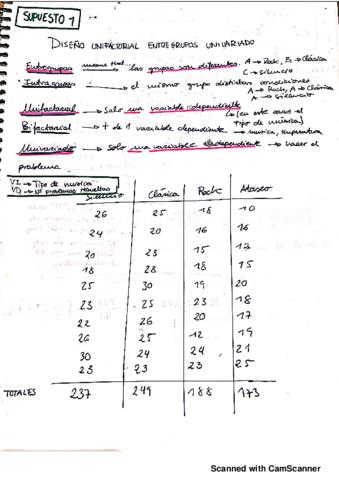 SUPUESTO 1
DISEÑO UNIFACTORIAL ENTREGRUPOS UNIVARIADO
Entregrupos means that las grupos son diferentes. A → Rock, B → Clásica
C → silencio
Intragrupos : → el mismo grupo distintas condiciones
A → Rock, A → Clásica
A → Silencio
Unifactorial → Solo una variable independiente
(en este caso el
tipo de música)
Bifactorial → + de 1 variable dependiente → musica, temperatura
Univariado → Solo una variable dependiente → hacer el
problema.
VI → Tipo de musica
VD → Nº problemas resueltos
Silencio Clásica Rock
26 25 18 10
24 20 16 16
20 23 15 12
18 28 18 15
25 30 19 20
23 25 23 18
22 26 20 17
26 25 12 19
30 24 24 21
23 23 23 25
TOTALES 237 249 188 173
Scanned with CamScanner